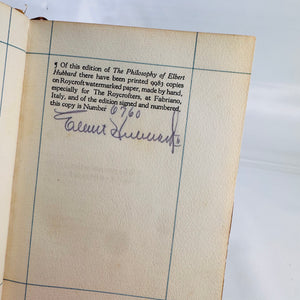 ¶ Of this edition of The Philosophy of Elbert
Hubbard there have been printed 9983 copies
on Roycroft watermarked paper, made by hand,
especially for The Roycrofters, at Fabriano,
Italy, and of the edition signed and numbered
this copy is Number 6760
Elbert Hubbard II